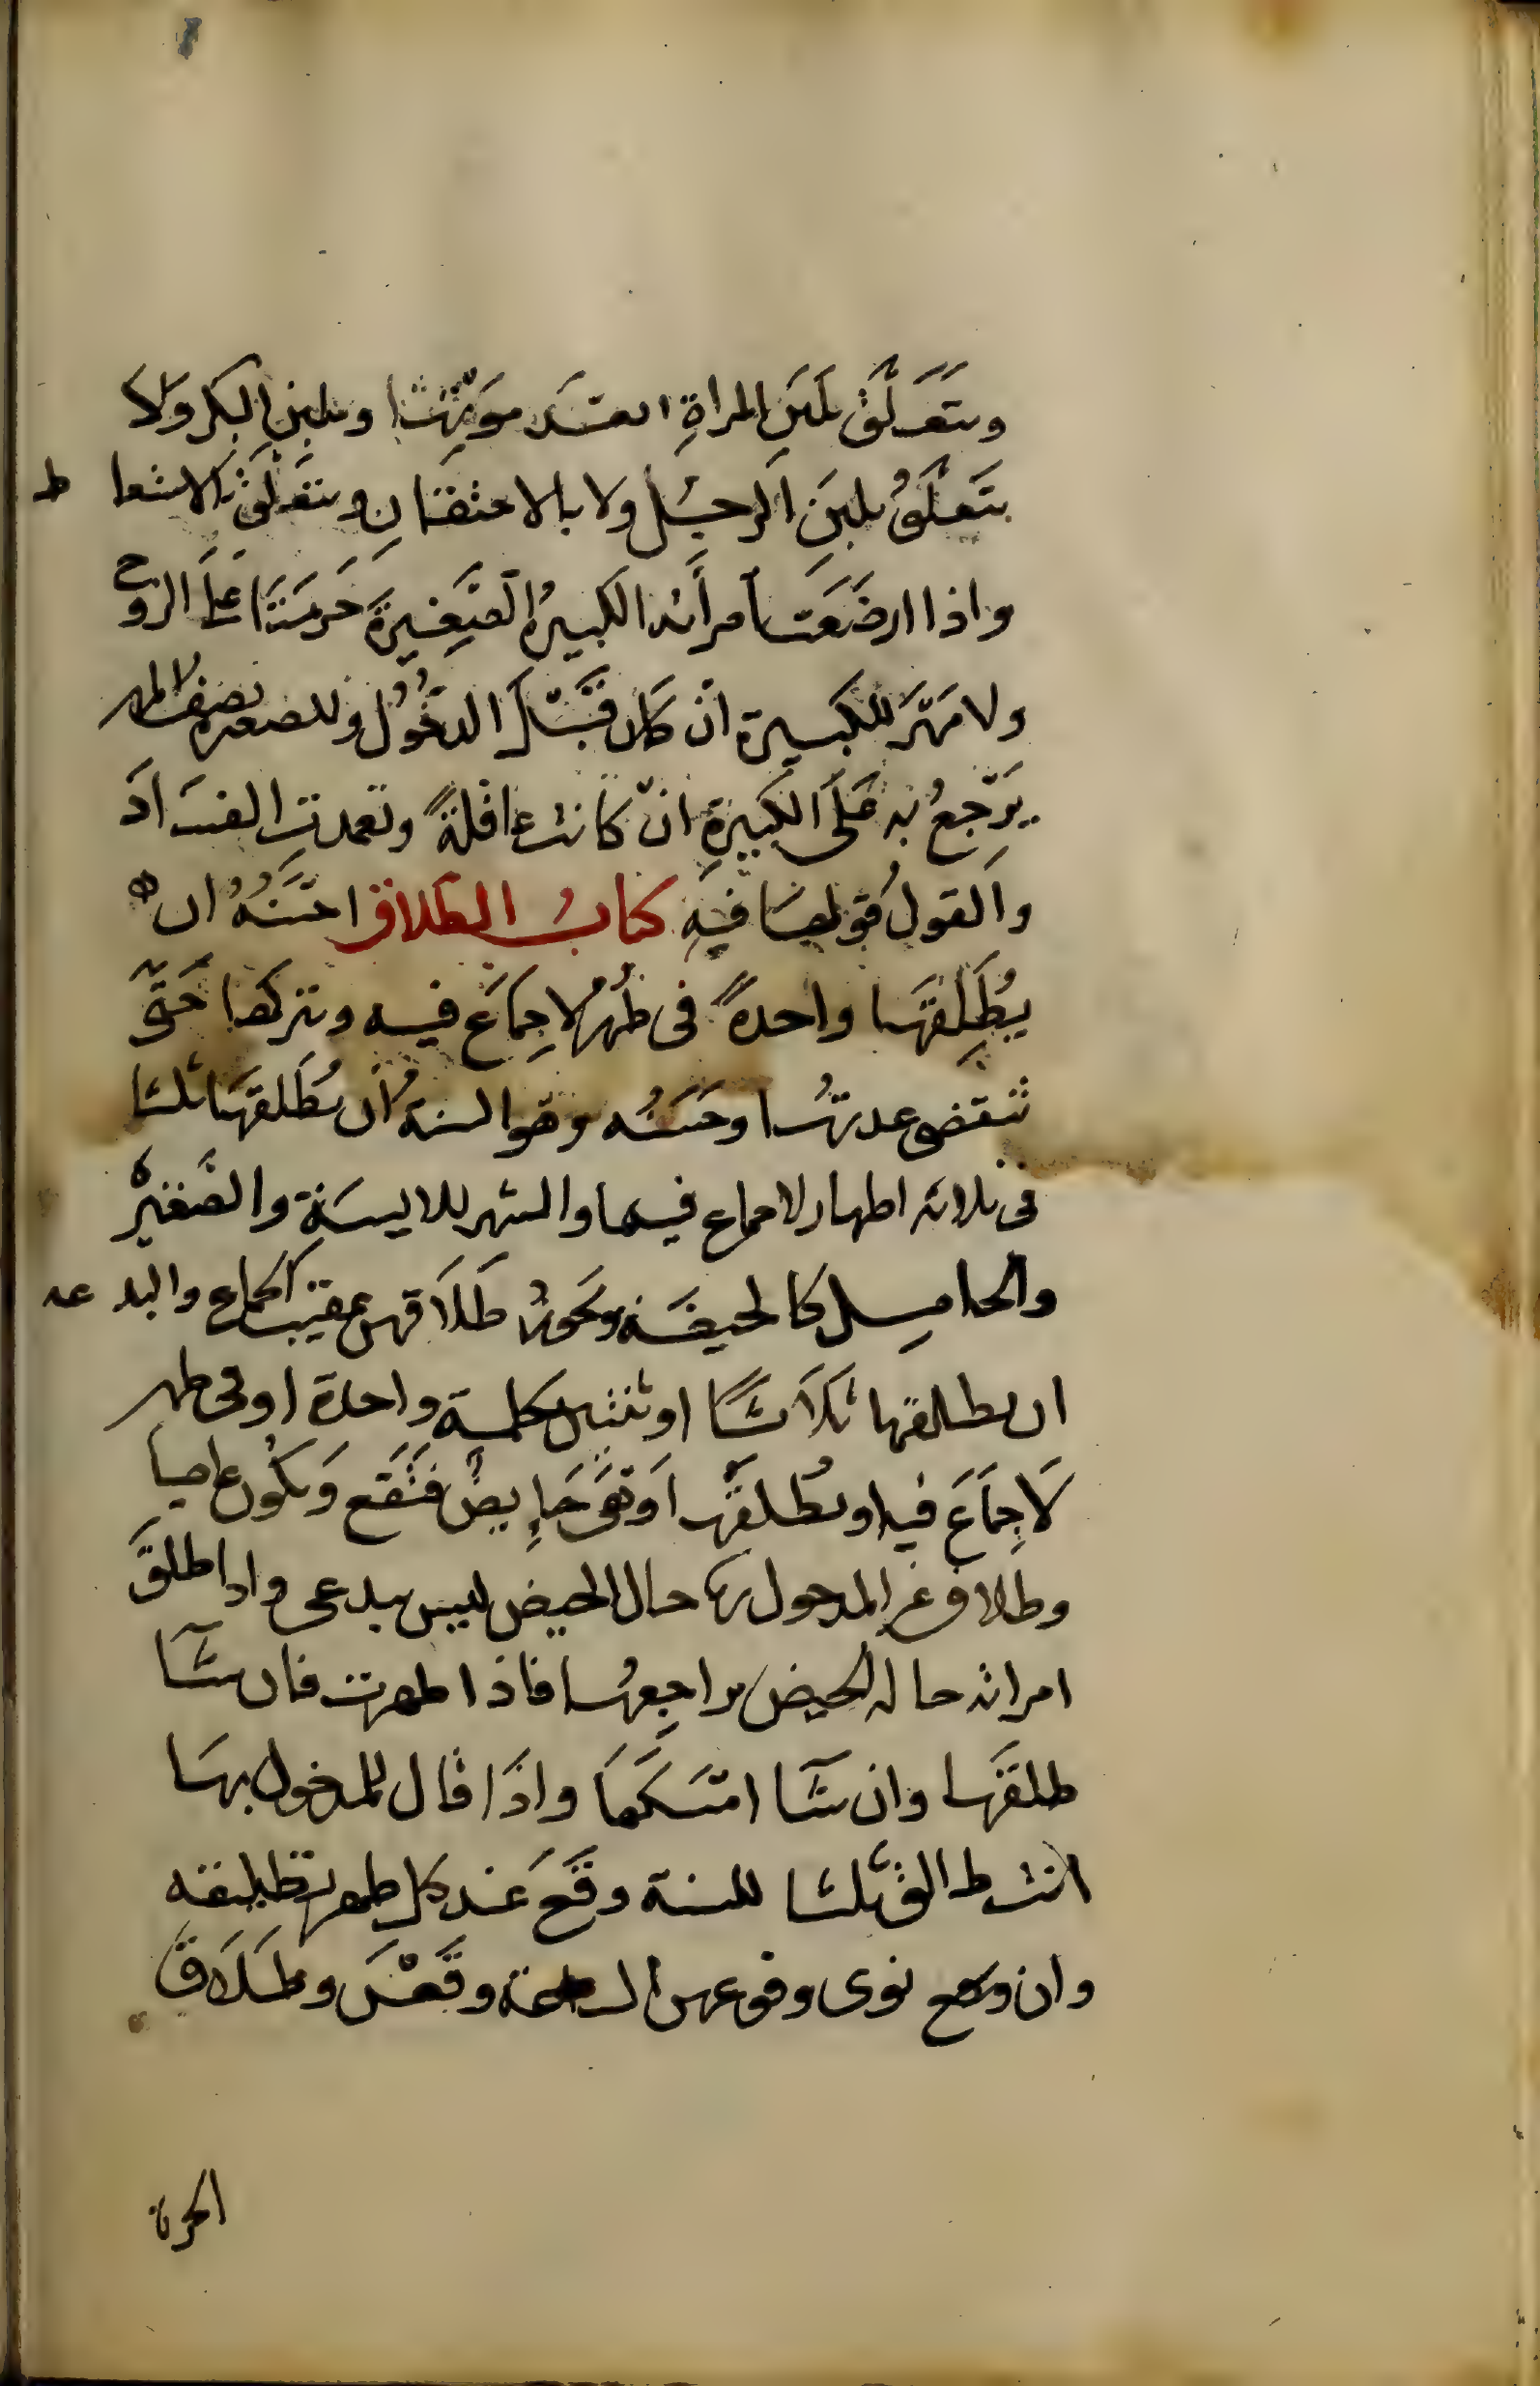 ويتعلّق بلبن المراةِ بعد موتها وبلبن البكر ولا
يتعلّق بلبن الرجل ولا بالاحتقان ويتعلق بالاستعاط
واذا ارضعت امرأته الكبيرةُ الصّغيرةَ حَرمتا على الزوج
ولا مَهرَ للكبيرة انْ كان قبْل الدخُول وللصغيرة نصف المهر
يَرْجعُ به عَلى الكبيرةِ انْ كانت عاقلةً وتعمدت الفسادَ
والقولُ قولها فيه كتابُ الطَلاق احسَنُهُ ان
يُطَلِقهَا واحدةً في طُهر لا جِمَاعَ فيه ويتركها حَتّى
تنقضى عدتهُا وحَسَنُه وهو السنة أن يُطَلقهَا ثلثا
فى ثلاثه اطهار لا جماع فيها والشهر للايسَةِ والصَّغيرْة
والحامِل كالحيضَة ويجوزُ طَلاَقهن عقيب الجماع والبدعه
ان يطلقها ثَلاَثًا او ثنتين بكلمة واحدة او فى طهر
لاَ جِمَاعَ فيه او يُطَلقَّها اَوْ هَىَ حَايِضٌ فَتَقَع وَيكُون عاصيا
وطلاق غير المدخول بها حال الحيض ليس ببدعى واذا طلقَ
امراته حاله الحيض يراجِعهُا فاذا طهرت فان شآ
طلقَها وان شآ امسَكَها واذَا قال للمدخول بهَا
انت طالق ثَلثا للسنة وقَعَ عَند كل طهر تطليقه
وان نوى وقوعهن الساعة وقَعْنَ وطَلَاقَ
الحرة